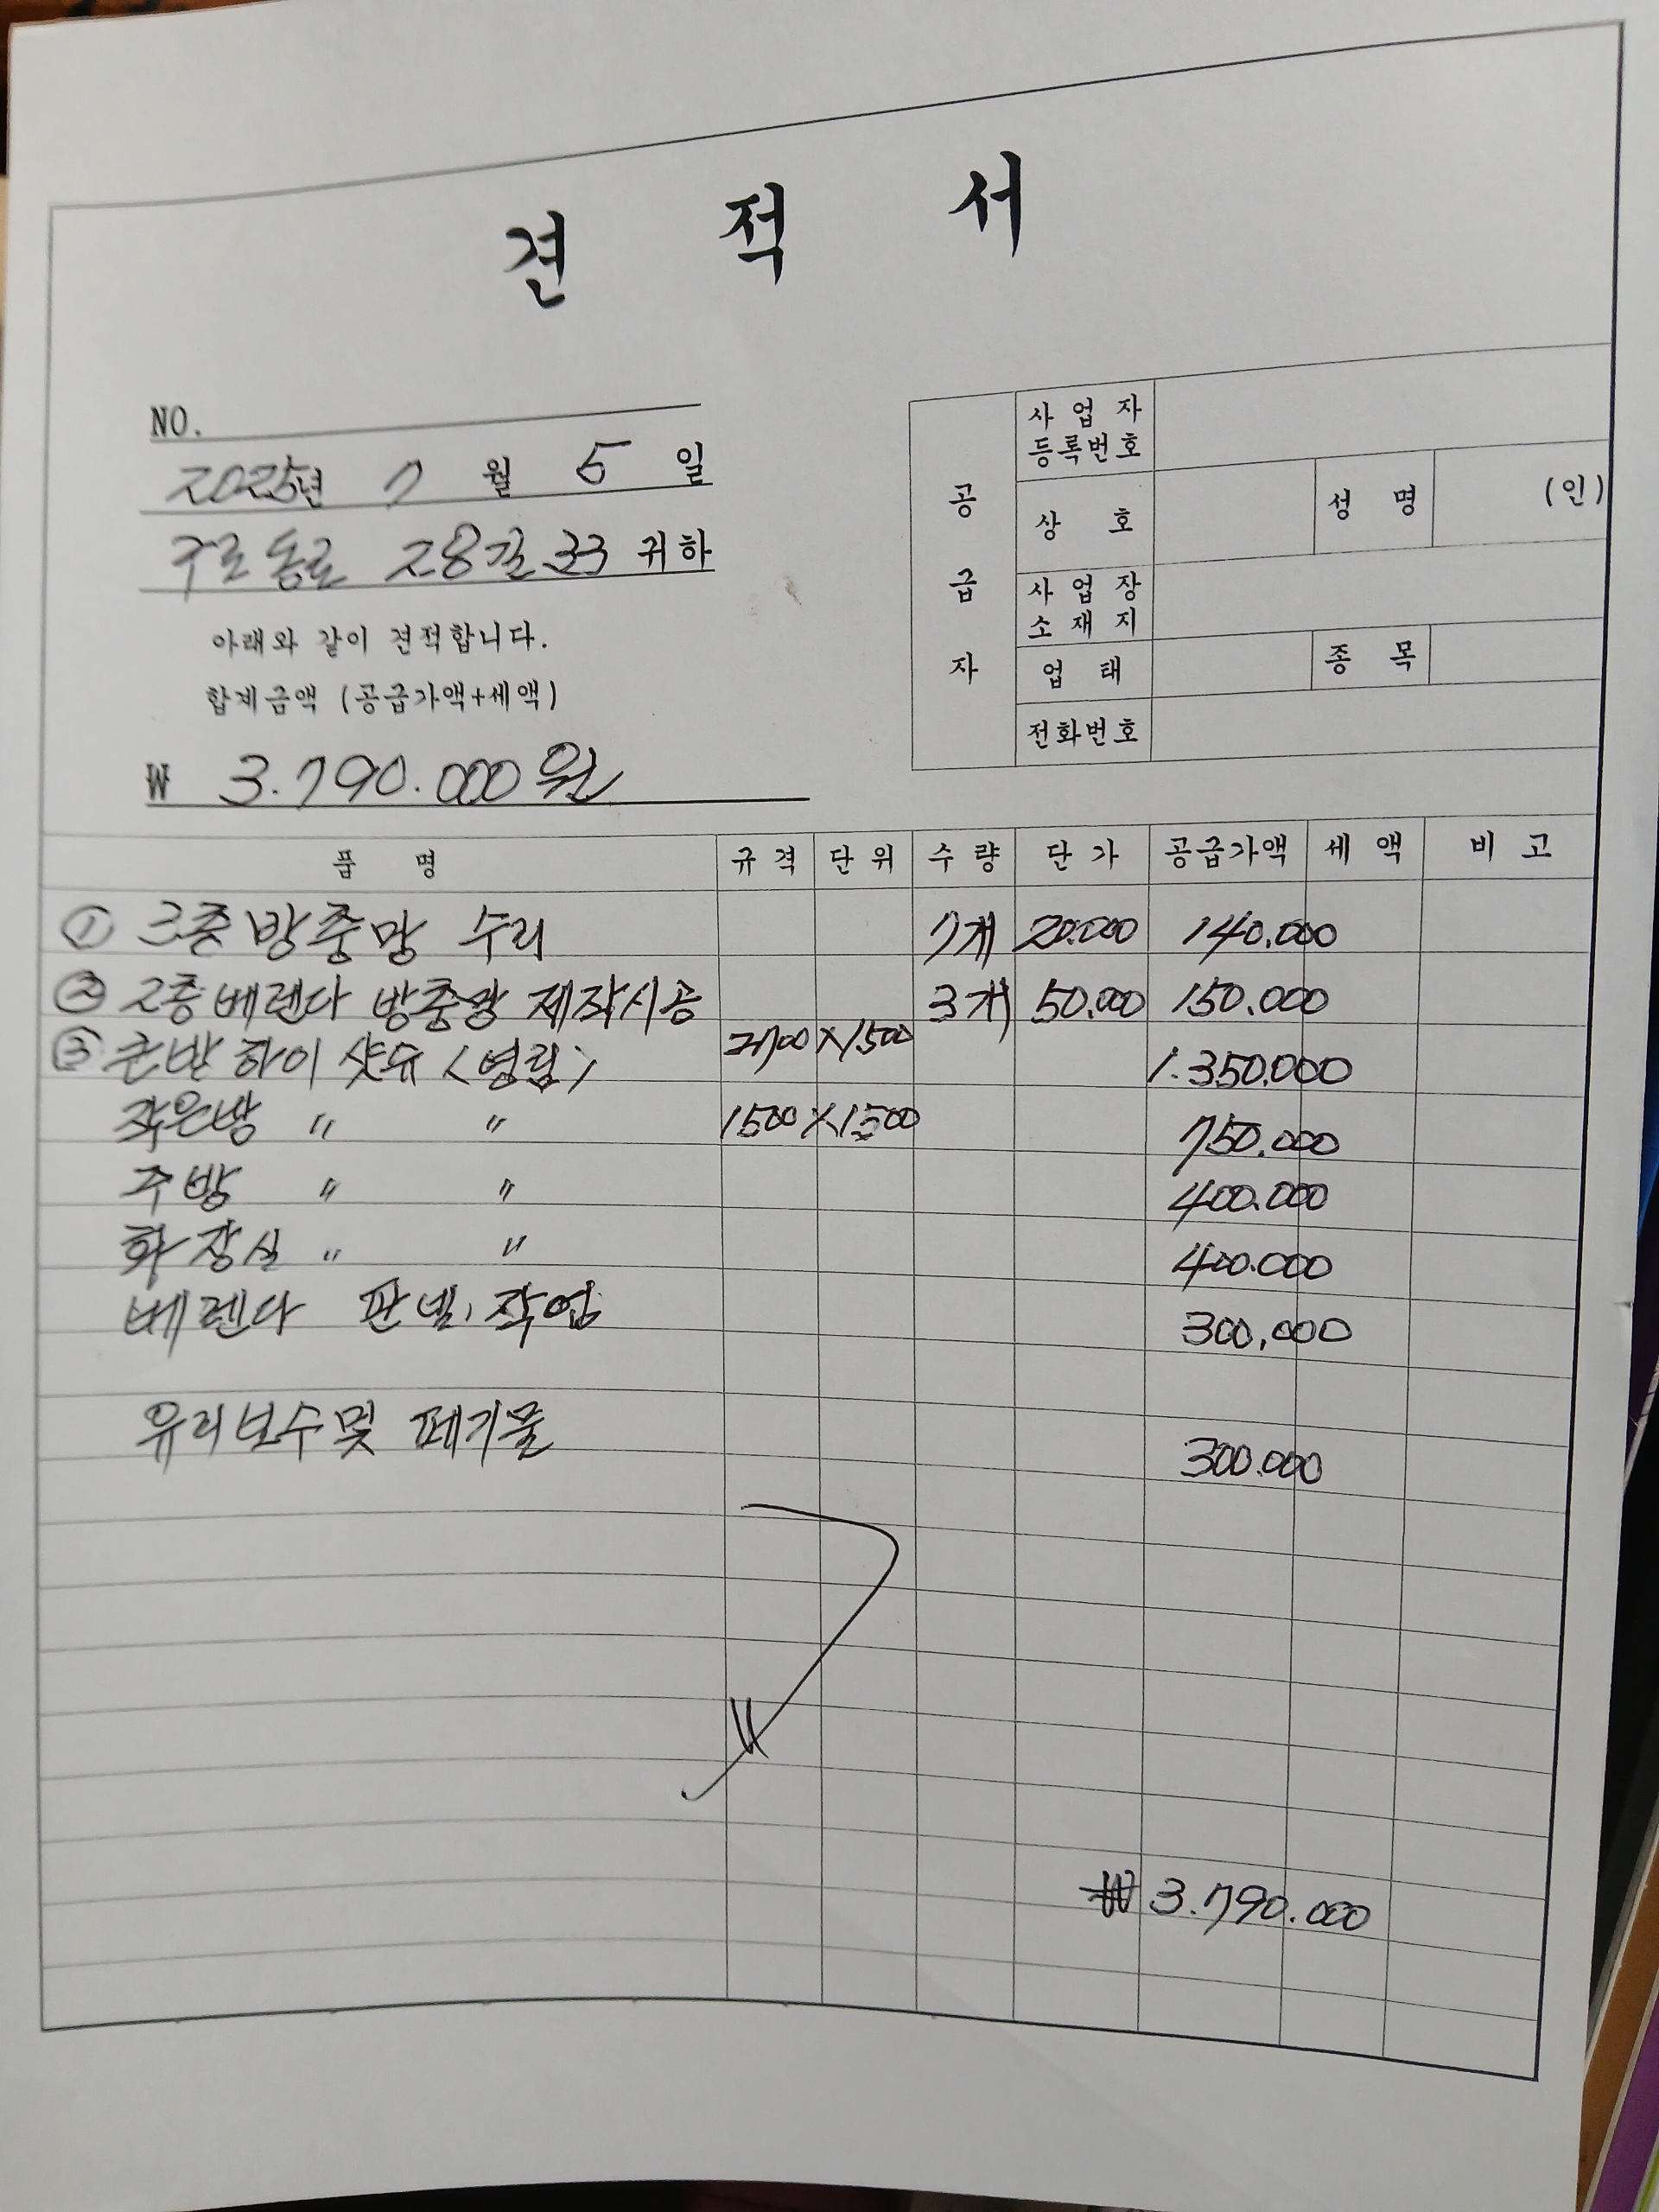 견 적 서
NO.
2025년 7 월 5 일
구로동로 28길 33 귀하
아래와 같이 견적합니다.
합계금액 (공급가액+세액)
₩ 3.790.000원
공급자
사업자등록번호
상 호 성 명 (인)
사업장소재지
업 태 종 목
전화번호
품 명 규격 단위 수량 단가 공급가액 세 액 비 고
① 3층 방충망 수리 7개 20.000 140.000
② 2층 베렌다 방충망 제작시공 3개 50.000 150.000
③ 큰방 하이샷슈 <영림> 2700×1500 1.350.000
작은방 〃 〃 1500×1500 750.000
주방 〃 〃 400.000
화장실 〃 〃 400.000
베렌다 판넬, 작업 300,000
유리보수및 폐기물 300.000
₩ 3.790.000